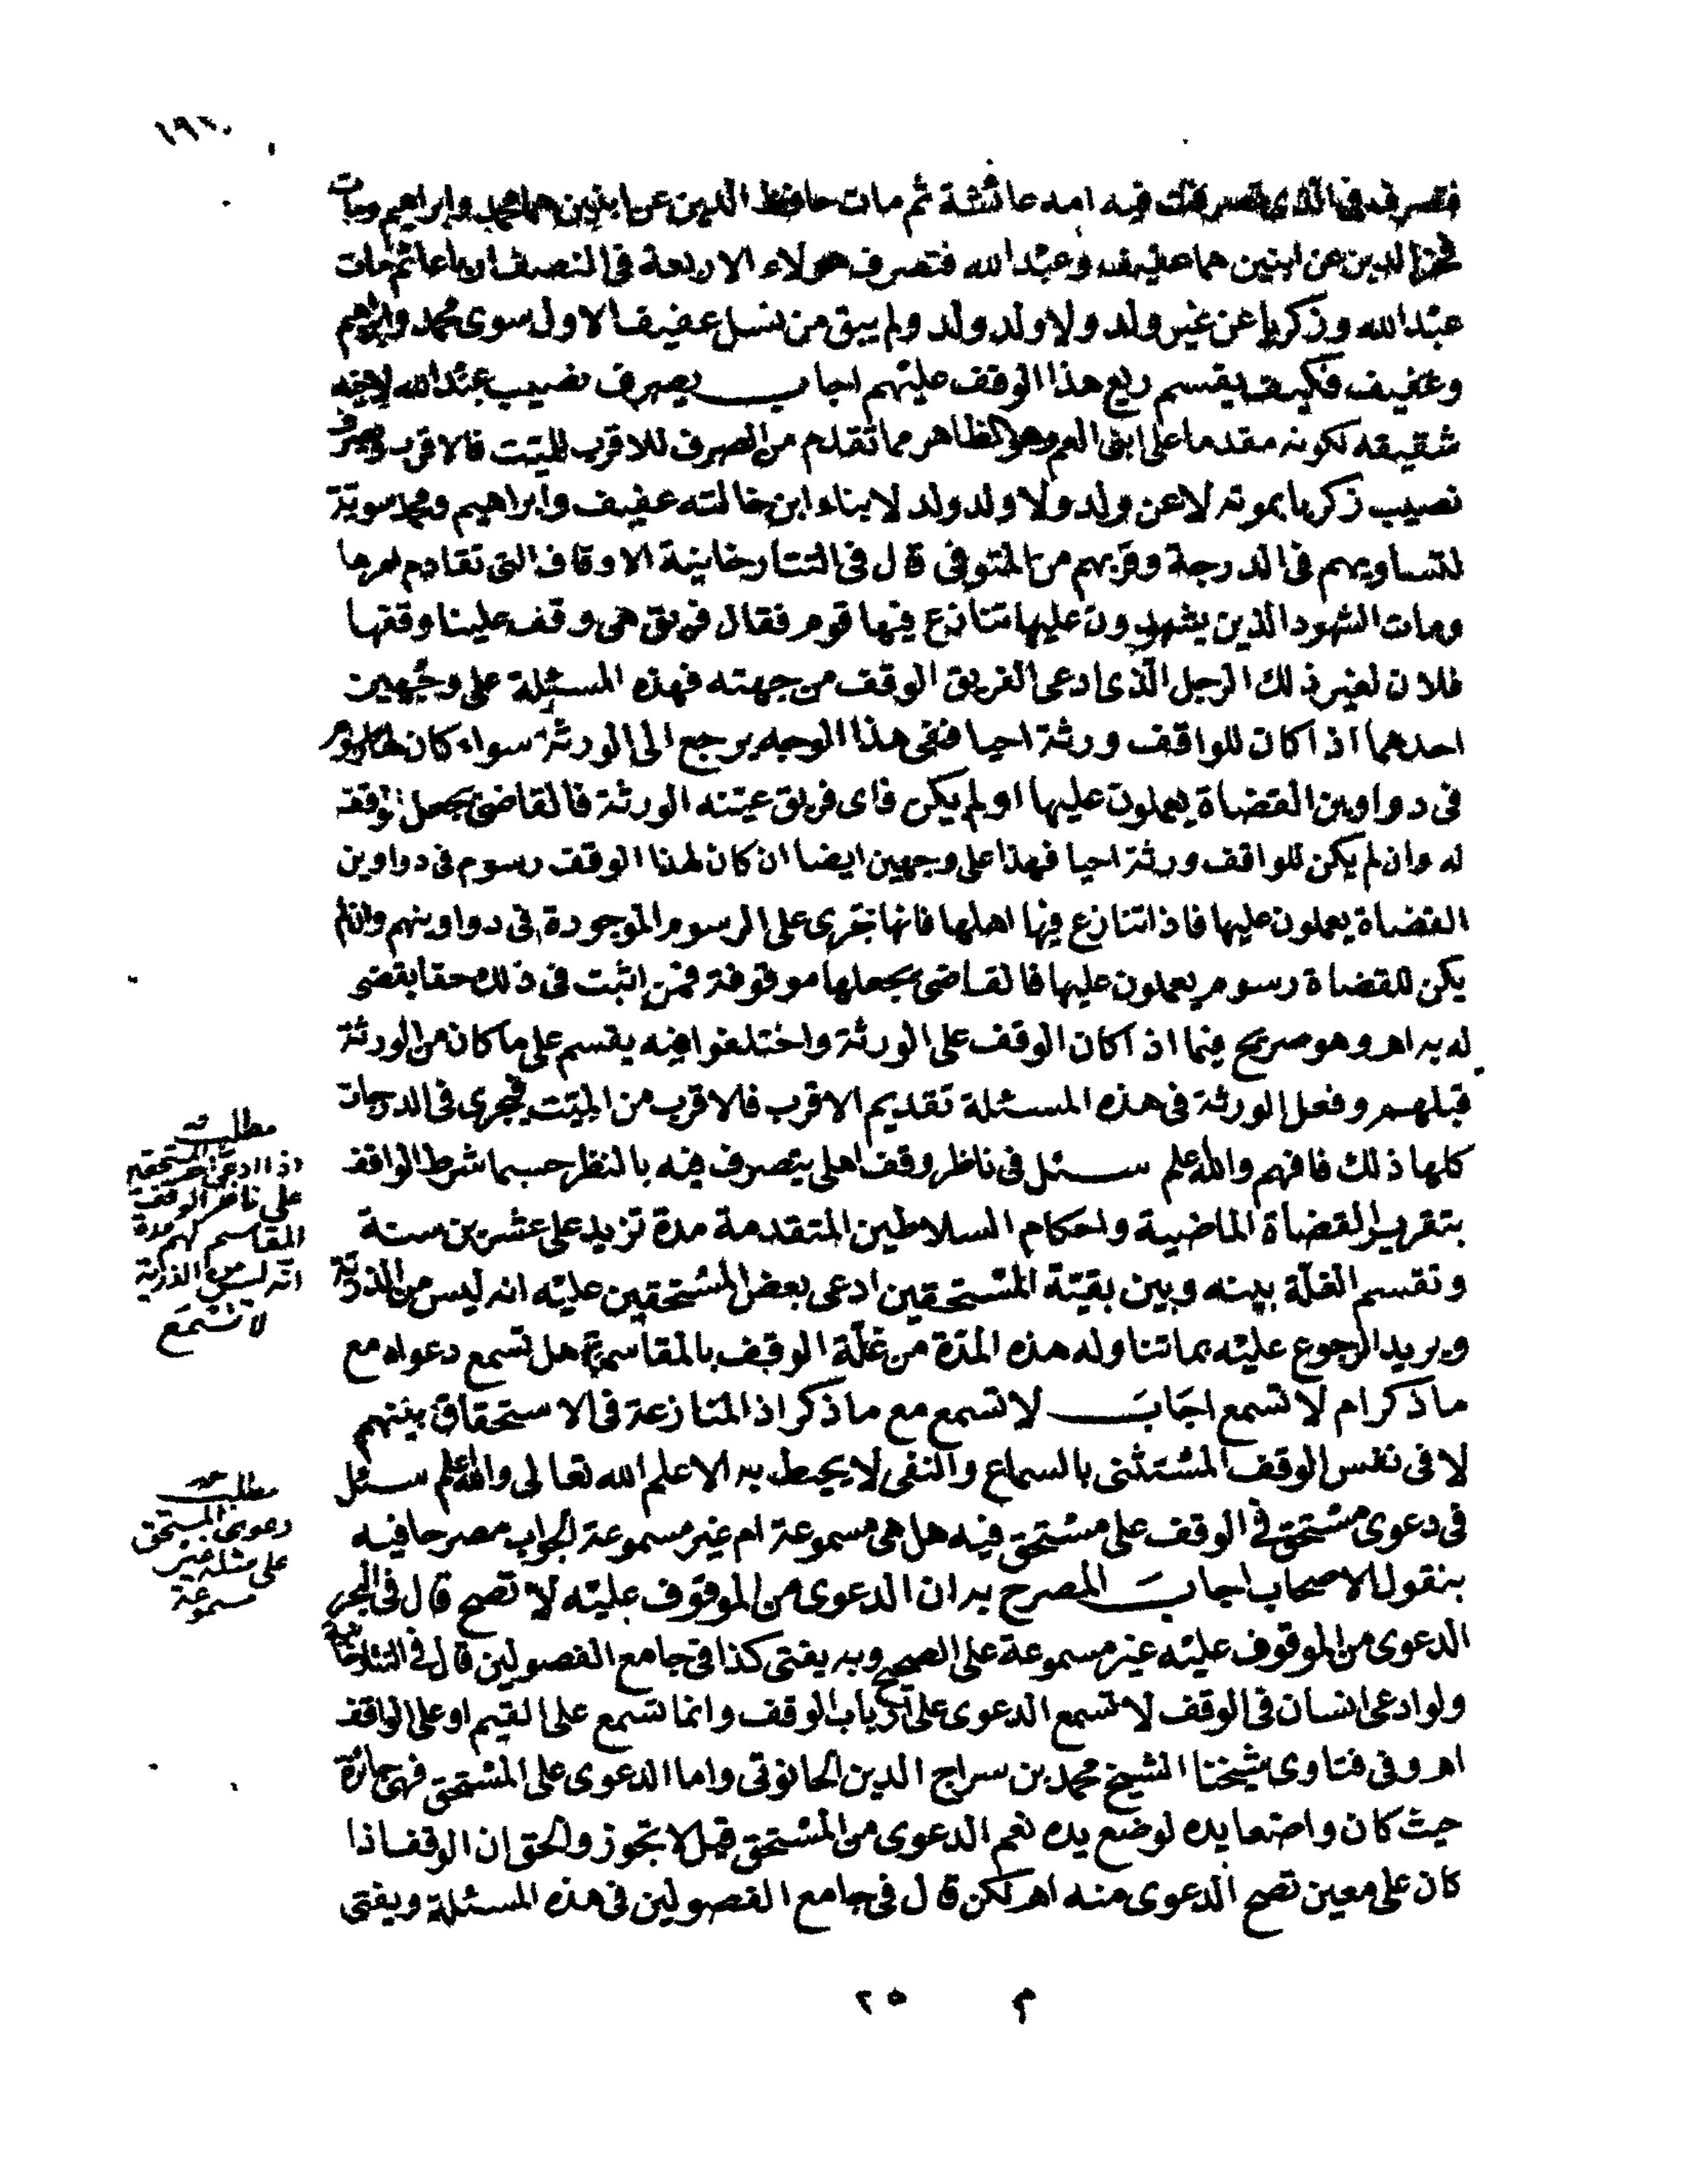 فتصرف في الذي تصرفت فيه امه عائشة ثم مات حافظ الدين عن ابنين هما محمد وابراهيم ومات
فخر الدين عن ابنين هما عفيف وعبد الله فتصرف هولاء الاربعة في النصف ارباعا ثم مات
عبد الله وزكريا عن غير ولد ولا ولد ولد ولم يبق من نسل عفيف الاول سوى محمد وابراهيم
وعفيف فكيف يقسم ريع هذا الوقف عليهم اجاب يصرف نصيب عبد الله لاخيه
شقيقه لكونه مقدما على ابنى العم وهو الظاهر مما تقدم من الصرف للاقرب للميت فالاقرب ويصرف
نصيب زكريا بموته لا عن ولد ولا ولد ولد لابناء ابن خالته عفيف وابراهيم ومحمد سوية
لتساويهم في الدرجة وقربهم من المتوفى قال في التتارخانية الاوقاف التي تقادم امرها
ومات الشهود الذين يشهدون عليها تنازع فيها قوم فقال فريق هى وقف علينا وقفها
فلان لغير ذلك الرجل الذى ادعى الفريق الوقف من جهته فهذه المسئلة على وجهين
احدهما اذا كان للواقف ورثة احيا ففى هذا الوجه يرجع الى الورثة سواء كان لها رسوم
في دواوين القضاة يعملون عليها او لم يكن فاى فريق عينه الورثة فالقاضى يجعل الوقف
له وان لم يكن للواقف ورثة احيا فهذا على وجهين ايضا ان كان لهذا الوقف رسوم في دواوين
القضاة يعملون عليها فاذا تنازع فيها اهلها فانها تجرى على الرسوم الموجودة في دواوينهم وان لم
يكن للقضاة رسوم يعملون عليها فالقاضى يجعلها موقوفة فمن اثبت في ذلك حقا يقضى
له به اهـ وهو صريح فيما اذا كان الوقف على الورثة واختلفوا فيه يقسم على ما كان من الورثة
قبلهم وفعل الورثة في هذه المسئلة تقديم الاقرب فالاقرب من الميت فيجرى في الدرجات
كلها ذلك فافهم والله اعلم سئل في ناظر وقف اهلى يتصرف فيه بالنظر حسبما شرط الواقف
بتقرير القضاة الماضية واحكام السلاطين المتقدمة مدة تزيد على عشرين سنة
وتقسم الغلة بينه وبين بقية المستحقين ادعى بعض المستحقين عليه انه ليس من الذرية
ويريد الرجوع عليه بما تناوله هذه المدة من غلة الوقف بالمقاسمة هل تسمع دعواه مع
ما ذكر ام لا تسمع اجاب لا تسمع مع ما ذكر اذ المنازعة في الاستحقاق بينهم
لا في نفس الوقف المستثنى بالسماع والنفى لا يحيط به الا علم الله تعالى والله اعلم سئل
في دعوى مستحق في الوقف على مستحق فيه هل هى مسموعة ام غير مسموعة الجواب مصرحا فيه
بنقول الاصحاب اجاب المصرح به ان الدعوى من الموقوف عليه لا تصح قال في البحر
الدعوى من الموقوف عليه غير مسموعة على الصحيح وبه يفتى كذا في جامع الفصولين قال في التتارخانية
ولو ادعى انسان في الوقف لا تسمع الدعوى على ارباب الوقف وانما تسمع على القيم او على الواقف
اهـ وفي فتاوى شيخنا الشيخ محمد بن سراج الدين الحانوتى واما الدعوى على المستحق فهى جائزة
حيث كان واضعا يده لوضع يده نعم الدعوى من المستحق قيل لا تجوز والحق ان الوقف اذا
كان على معين تصح الدعوى منه اهـ لكن قال في جامع الفصولين في هذه المسئلة ويفتى
مطلب
اذا ادعى بعض المستحقين
على ناظر الوقف
المقاسم لهم مدة
انه ليس من الذرية
لا تسمع
مطلب
دعوى المستحق
على مثله غير
مسموعة
م ٢٥